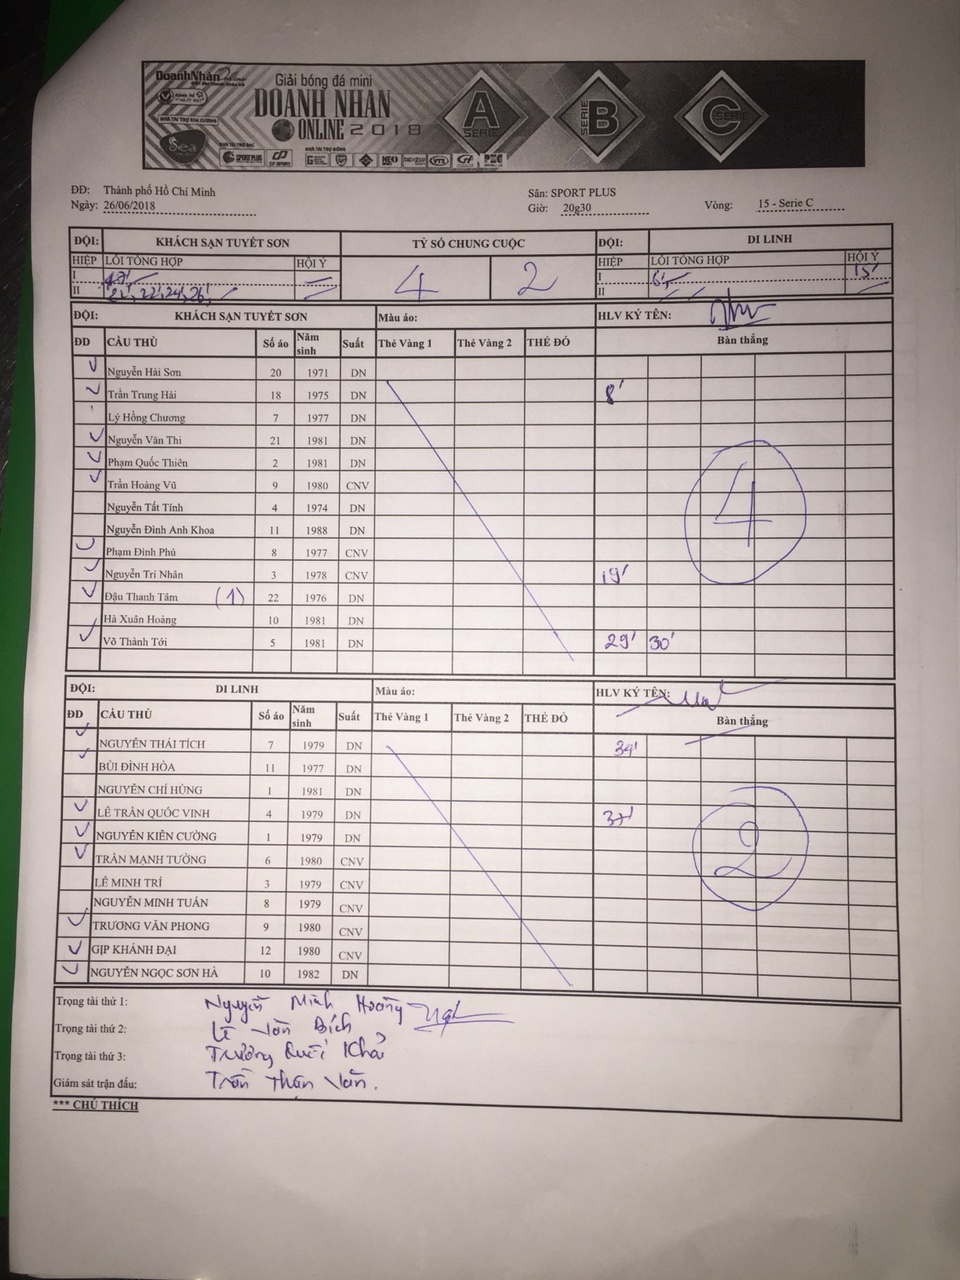 DoanhNhân Online
Giải bóng đá mini
DOANH NHÂN
ONLINE 2018
NHÀ TÀI TRỢ KIM CƯƠNG
Sea
NHÀ TÀI TRỢ BẠC
SPORT PLUS
NHÀ TÀI TRỢ ĐỒNG
NEO
VTL
A SERIE
SERIE B
C SERIE
ĐĐ: Thành phố Hồ Chí Minh
Sân: SPORT PLUS
Ngày: 26/06/2018
Giờ: 20g30
Vòng: 15 - Serie C
ĐỘI: KHÁCH SẠN TUYẾT SƠN TỶ SỐ CHUNG CUỘC ĐỘI: DI LINH
HIỆP LỖI TỔNG HỢP HỘI Ý 4 2 HIỆP LỖI TỔNG HỢP HỘI Ý
I I 15'
II 21', 22', 24', 26' II
ĐỘI: KHÁCH SẠN TUYẾT SƠN Màu áo: HLV KÝ TÊN:
ĐD CẦU THỦ Số áo Năm sinh Suất Thẻ Vàng 1 Thẻ Vàng 2 THẺ ĐỎ Bàn thắng
Nguyễn Hải Sơn 20 1971 DN
Trần Trung Hải 18 1975 DN 8'
Lý Hồng Chương 7 1977 DN
Nguyễn Văn Thi 21 1981 DN
Phạm Quốc Thiên 2 1981 DN
Trần Hoàng Vũ 9 1980 CNV
Nguyễn Tất Tính 4 1974 DN
4
Nguyễn Đình Anh Khoa 11 1988 DN
Phạm Đình Phú 8 1977 CNV
Nguyễn Trí Nhân 3 1978 CNV 19'
Đậu Thanh Tâm (1) 22 1976 DN
Hà Xuân Hoàng 10 1981 DN
Võ Thành Tới 5 1981 DN 29' 30'
ĐỘI: DI LINH Màu áo: HLV KÝ TÊN:
ĐD CẦU THỦ Số áo Năm sinh Suất Thẻ Vàng 1 Thẻ Vàng 2 THẺ ĐỎ Bàn thắng
NGUYỄN THÁI TÍCH 7 1979 DN 34'
BÙI ĐÌNH HÒA 11 1977 DN
NGUYỄN CHÍ HÙNG 1 1981 DN
LÊ TRẦN QUỐC VINH 4 1979 DN 37'
NGUYỄN KIÊN CƯỜNG 1 1979 DN
2
TRẦN MẠNH TƯỜNG 6 1980 CNV
LÊ MINH TRÍ 3 1979 CNV
NGUYỄN MINH TUẤN 8 1979 CNV
TRƯƠNG VĂN PHONG 9 1980 CNV
GỊP KHÁNH ĐẠI 12 1980 CNV
NGUYỄN NGỌC SƠN HÀ 10 1982 DN
Trọng tài thứ 1: Nguyễn Minh Hoàng
Trọng tài thứ 2: Lê Văn Bích
Trọng tài thứ 3: Trương Quốc Khả
Giám sát trận đấu: Trần Thân Văn.
*** CHÚ THÍCH